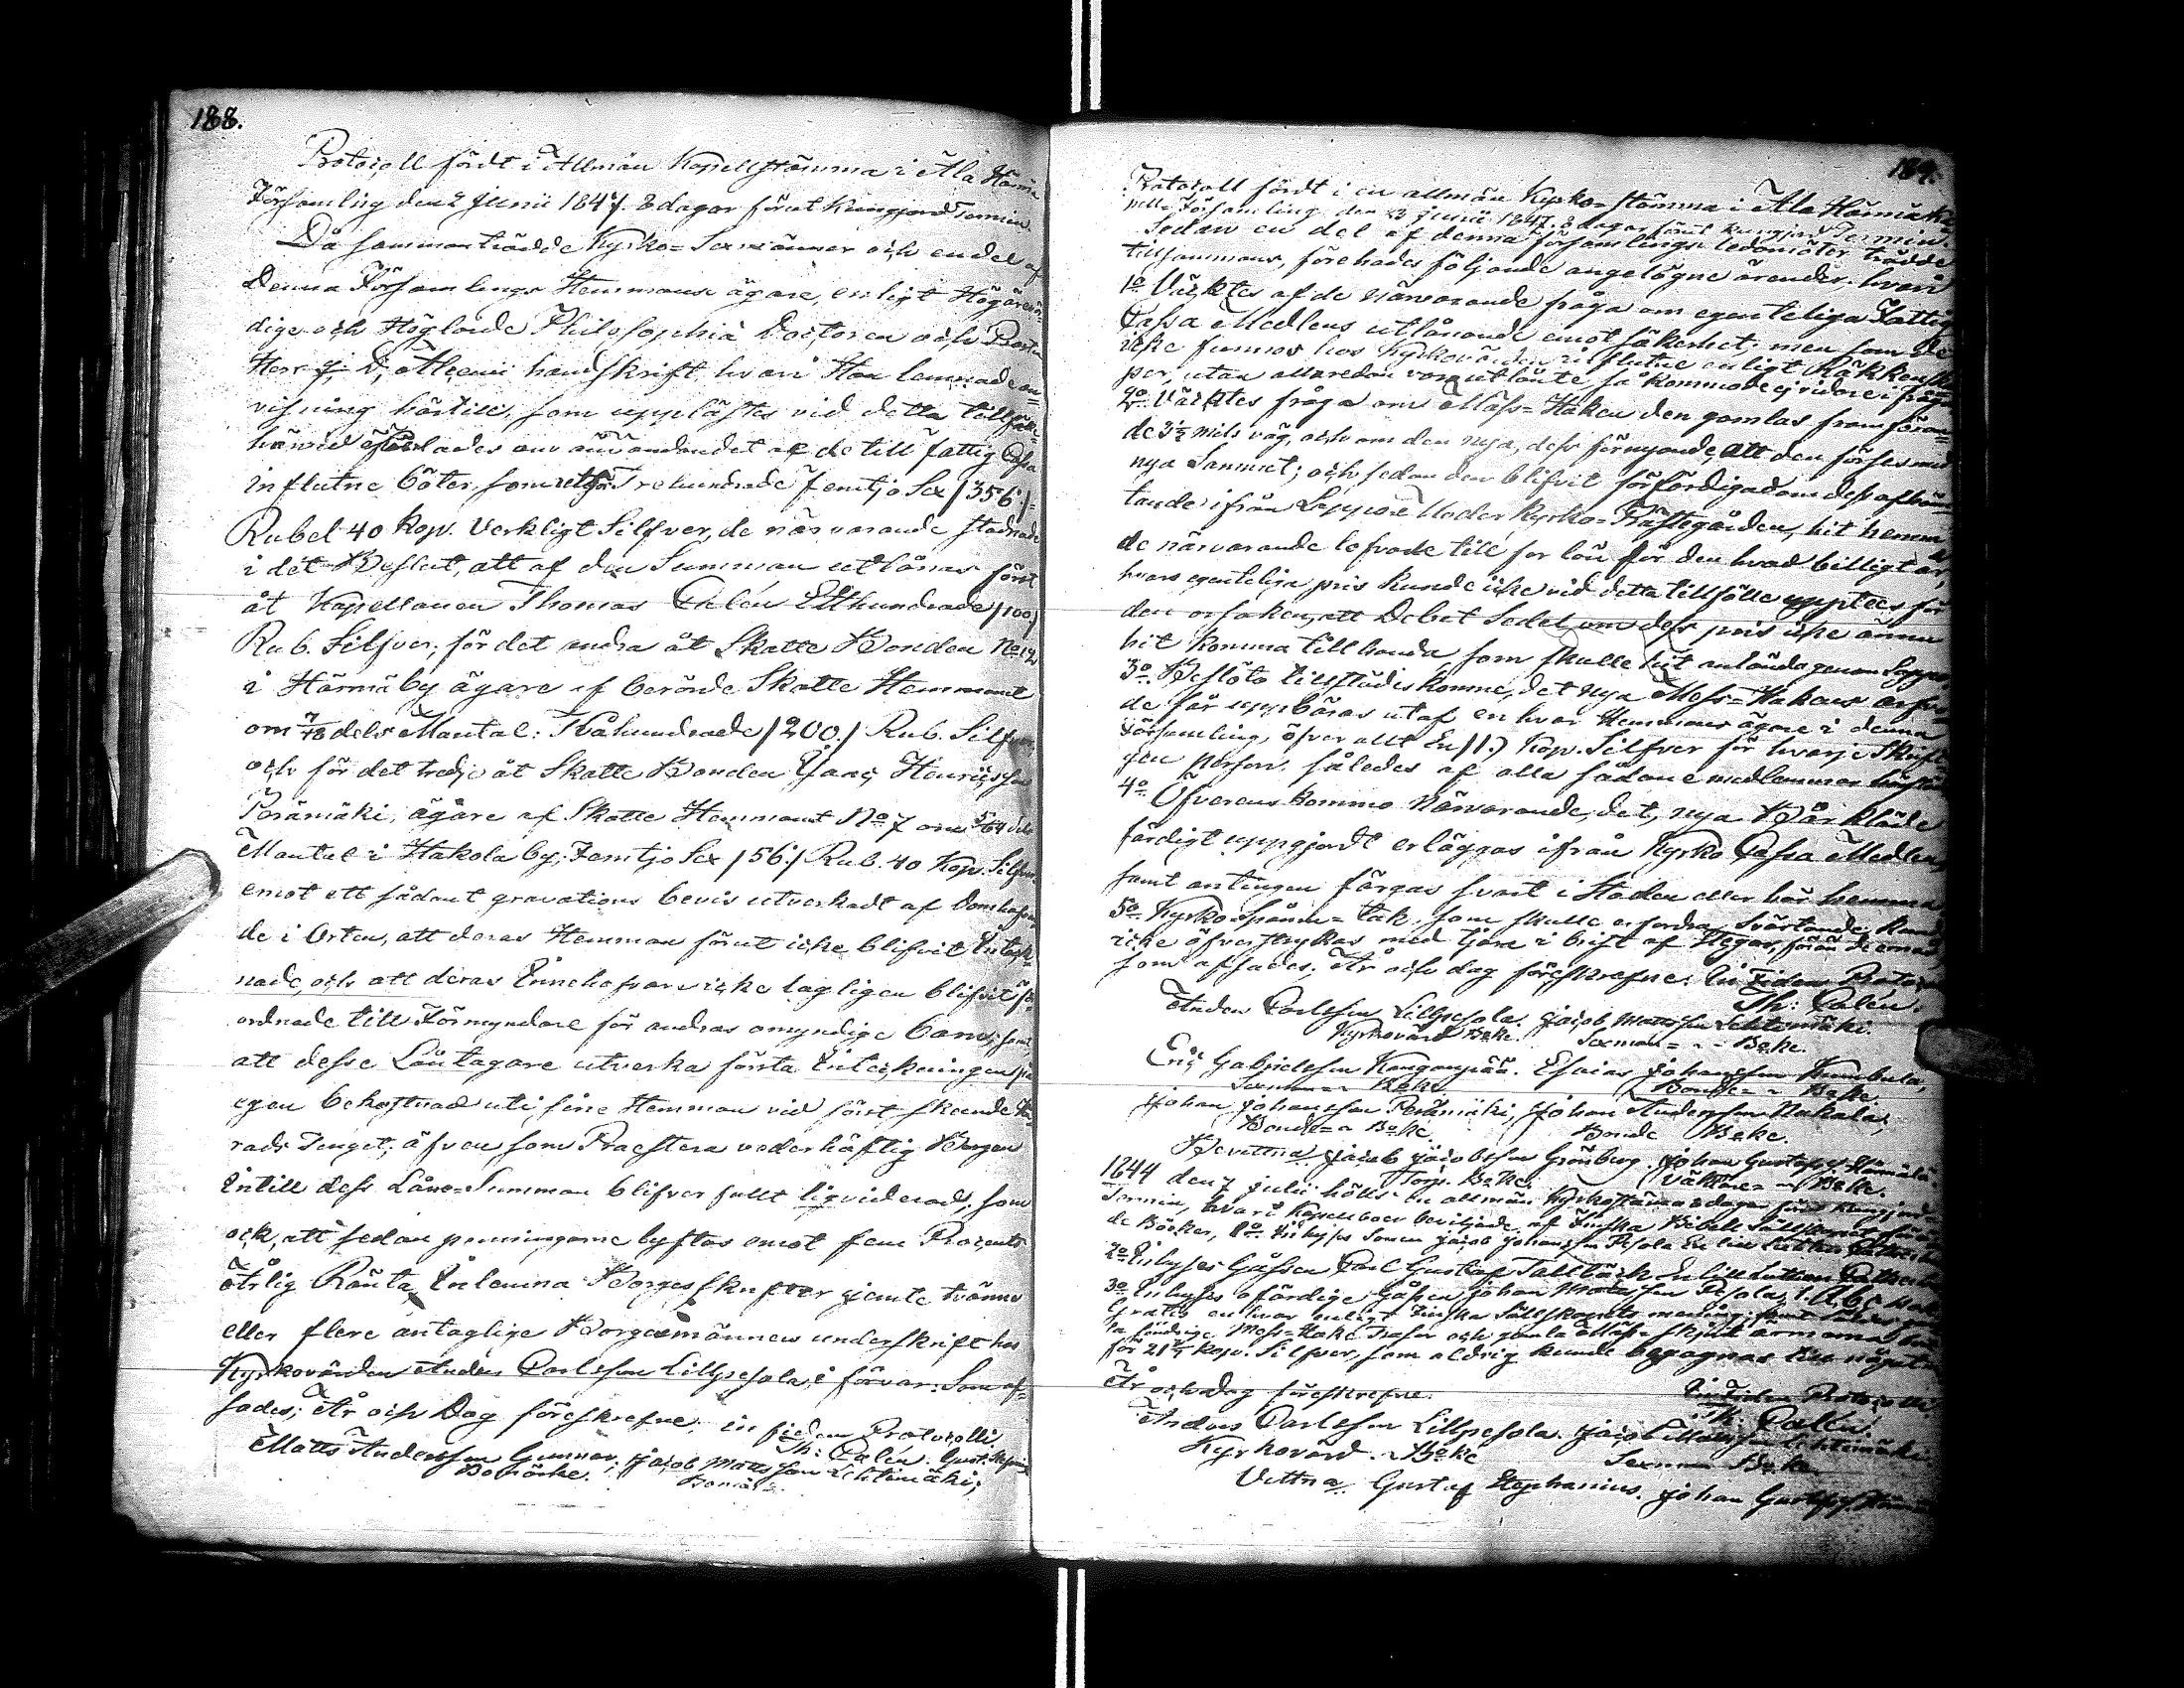 188.
Protocoll fördt i Allmän Kapellstämma i Ala Härmä
Församling den 2 Junii 1844. 8 dagar förut kungjord Termin.
Då sammanträdde Kyrko= Sexmänner och en del af
Denna Församlings Hemmans ägare, enligt Högärevör-
dige och Höglärde Philosophiæ Doctoren och
Herr handskrift, hvari Han lemnade an=
visning härtill, som upplästes vid detta
härvid om användandet af de till fattig Cassa
influtne böter, som utgör Trehundrade femtjo Sex /356/
Rubel 40 Kop. Verkligt Silfver, de närvarande stadnade
i det Beslut, att af den Summan utlånas först
åt Kapellanen Thomas Calén Etthundrade /100/
Rub. Silfver; för det andra åt Skatte Bonden No 12
i Härmä by ägare af berörde Skatte Hemmant
om 7/48 dels Mantal: Tvåhundrade /200/ Rub. Silfver,
och för det tredje åt Skatte Bonden Isaac Henricsson
Perämäki, ägare af Skatte Hemmant No 7 om 5/64 dels
Mantal i Hakola by, Femtjo Sex /56/ Rub. 40 Kop. Silfver
emot ett sådant gravations bevis utverkadt af Domhafvan
de i Orten, att deras Hemman förut icke blifvit Inteck=
nade, och att deras Innehafvare icke lagligen blifvit för=
ordnade till Förmyndare för andras omyndige barn; samt
att desse Låntagare utverka första Inteckningen på
egen bekostnad uti sine Hemman vid först skeende Hä=
rads Tinget; äfven som Præstera vederhäftig Borgen
Intill dess Låne=Summan blifver fullt liqviderad; som
ock, att sedan penningarne lyftas emot fem Procents
Årlig Ränta, Inlemna Borges skrifter jemte tvänne
eller flere antaglige Borgesmänners underskrift hos
Kyrkovärden Anders Carlsson Lillpesola i förvar. Som af=
sades; År och Dag föreskrefne; in fidem Protocolli.
Th: Calén.
Matts Andersson Gunnar. Jacob Mattsson Lehtimäki;
Bomärke. Bomärke
189.
Protocoll fördt i en allmän Kyrko=stämma i Ala Härmä Ka
pells Församling den 23 Junii 1844. 8 dagar förut kungjord Termin.
Sedan en del af denna församlings ledamöter trädde
tillsammans, förehades följande angelägne ärender. hvari
1o Väcktes af de närvarande fråga om egenteliga Fattig
Cassa Medlens utlånande emot säkerhet; men som de
icke funnos hos Kyrkovärden influtne enligt Räkkenska
per, utan allaredan voro utlånte, så kommo de ej vidare i fråga
2o Väcktes fråga om Mäss=Haken den gamlas framföran=
de 3½ mils väg, och om den nya, dess förnyande, att den förses med
nya Sammet; och sedan den blifvit förfärdigad om dess afhäm=
tande ifrån Lappo Moder Kyrko=Prästegården, hit hemm
de närvarande lofvade till för lön för den hvad billigt är,
hvars egenteliga pris kunde icke vid detta tillfälle upptees för
den orsaken, att Debet Sedel om dess pris icke ännu
hit kommit till handa som skulle hit anlända genom Lappo
3o Beslöto tillstädes komne, det nya Mess=Hakens
de får uppbäras utaf en hvar Hemmans ägare i denna
Församling, öfver allt En /1/ Kop. Silfver för hvarje Skrift
gen person. således af alla sådane medlemmar
4o Öfverens kommo Närvarande, det, nya Bår kläde
färdigt uppgjordt erläggas ifrån Kyrko Cassa Medlen,
samt antingen färgas svart i Staden eller här hemma
5o Kyrko Spånn=tak, som skulle erfordra Svärtande, kunde
icke öfverstrykas med tjära i brist af Stegar, förän de
som afsades. År och dag föreskrefne. In Fidem Protoc
Th: Calén.
Anders Carlsson Lillpesola. Jacob Mattsson Lehtimäki.
Kyrkovärd Boke. Sexman= Boke.
Eric Gabrielsson Kangaspää. Esaias Johansson Kumbula,
Sexman Boke Bonde= Boke.
Johan Johansson Perämäki, Johan Andersson Hakala,
Bonde= Boke. Bonde Boke.
Bevittna Jacob Jacobsson Grönberg. Johan Gustafss. Hämälä.
Torp. Boke. Boke.
1844 den 7 Julii hölls en allmän Kyrkostämma 8 dagar förut kungjord
Termin, hvari Kapellboer beviljade af Finska Bibell Sällskapet
de Böcker, 1o
2o Inlyses Gåssen Carl Gustaf Tallbäck En liten
3o Inlyses ofärdige Gåssen Johan Pesola, 1. Abc
Gratis en hvar enligt Finska Sällskapets mening; samt
la Mess=Hake och gamla Mäss=skjort ärmarna
för 21 kop. Silfver, som aldrig kunde begagnas till något
År och Dag föreskrefne. In Fidem Protocolli
Th: Calén.
Anders Carlsson Lillpesola. Jacob Mattsson Lehtimäki.
Kyrkovärd. Boke Sexman Boke
Vittna Gustaf Stephanius. Johan Gustafss.